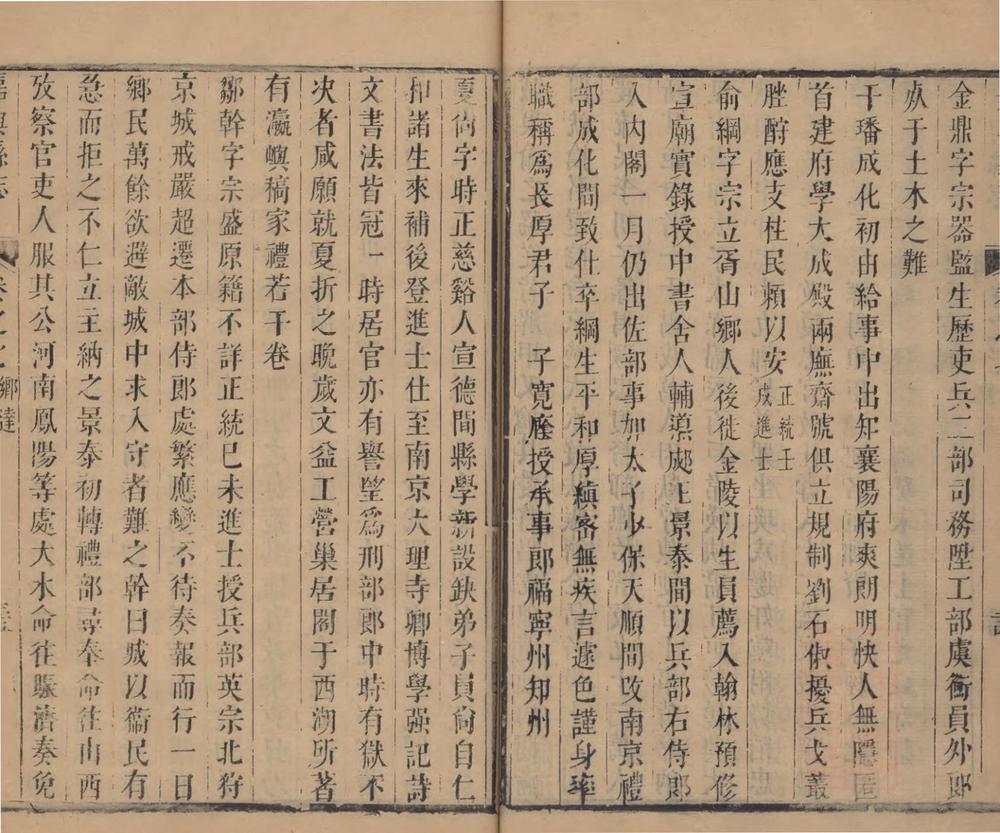 金鼎字宗器監生歷吏兵二部司務陞工部虞衡員外郎
歿于土木之難
干璠成化初由給事中出知襄陽府爽朗明快人無隱匿
首建府學大成殿兩廡齋號俱立規制劉石俶擾兵戈叢
脞酧應支柱民頼以安正統壬戌進士
俞綱字宗立胥山鄉人後徙金陵以生員薦入翰林預修
宣廟實錄授中書舍人輔導郕王景泰間以兵部右侍郎
入內閣一月仍出佐部事加太子少保天順間改南京禮
部成化間致仕卒綱生平和厚縝密無疾言遽色謹身率
職稱爲長厚君子 子寛廕授承事郎福寧州知州
夏尙字時正慈谿人宣德間縣學新設缺弟子員尙自仁
和諸生來補後登進士仕至南京大理寺卿博學强記詩
文書法皆冠一時居官亦有譽望爲刑部郎中時有獄不
决者咸願就夏折之晚歲文益工營巢居閣于西湖所著
有瀛嶼稿家禮若干卷
鄒幹字宗盛原籍不詳正統己未進士授兵部英宗北狩
京城戒嚴超遷本部侍郎處繁應變不待奏報而行一日
鄉民萬餘欲避敵城中求入守者難之幹曰城以衞民有
急而拒之不仁立主納之景泰初轉禮部尋奉命往山西
攷察官吏人服其公河南鳳陽等處大水命往賑濟奏免
嘉興縣志 卷之 鄉達